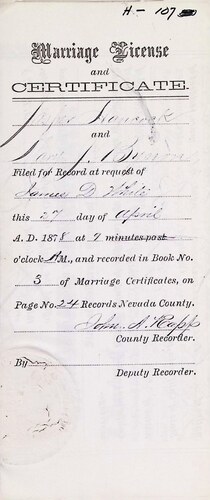 H - 107
Marriage License
and
CERTIFICATE.
and
J.
Filed for Record at request of
James D. White
this 27 day of April
A. D. 1878 at 9 minutes past
o'clock A M., and recorded in Book No.
3 of Marriage Certificates, on
Page No. 24 Records Nevada County.
John A. Rapp
County Recorder.
By
Deputy Recorder.